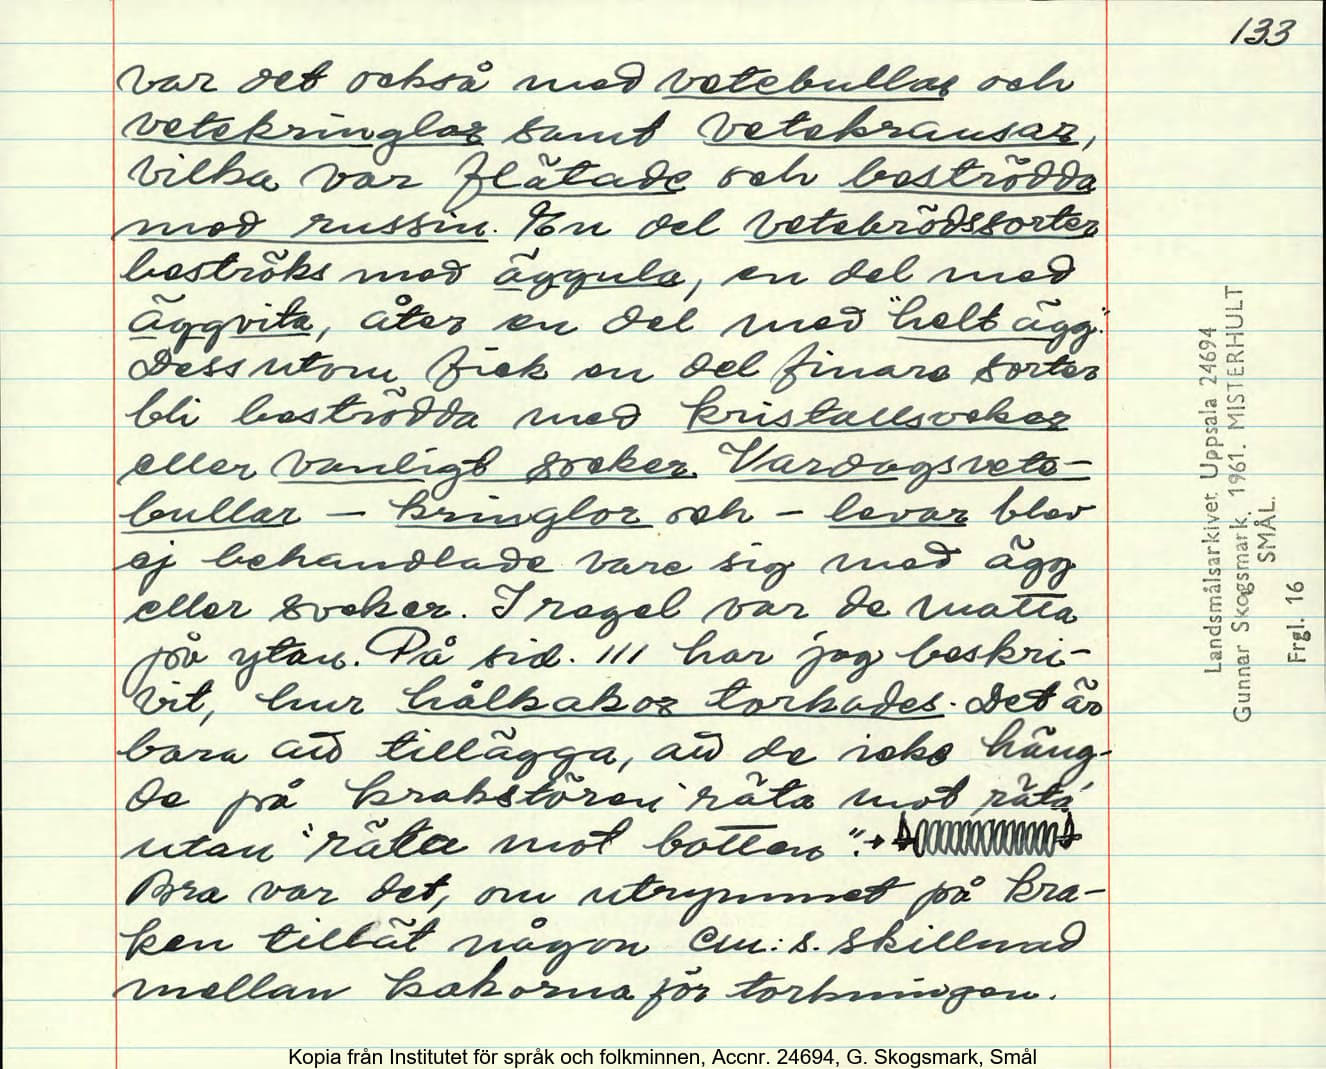 133
var det också med vetebullar och
vetekringlor samt vetekransar,
vilka var flätade och beströdda
med russin. En del vetebrödssorter
beströks med äggula, en del med
äggvita, åter en del med "helt ägg".
Dessutom fick en del finare sorter
bli beströdda med kristallsocker
eller vanligt socker. Vardagsvete-
bullar - kringlor och - levar blev
ej behandlade vare sig med ägg
eller socker. I regel var de matta
på ytan. På sid. 111 har jag beskri-
vit, hur hålkakor torkades. Det är
bara att tillägga, att de icke häng-
de på krakstören "räta mot räta"
utan "räta mot botten". →
Bra var det, om utrymmet på kra-
ken tillät någon cm:s. skillnad
mellan kakorna för torkningen.
Landsmålsarkivet Uppsala 24694
Gunnar Skogsmark. 1961. MISTERHULT
SMÅL.
Frgl. 16
Kopia från Institutet för språk och folkminnen, Accnr. 24694, G. Skogsmark, Smål